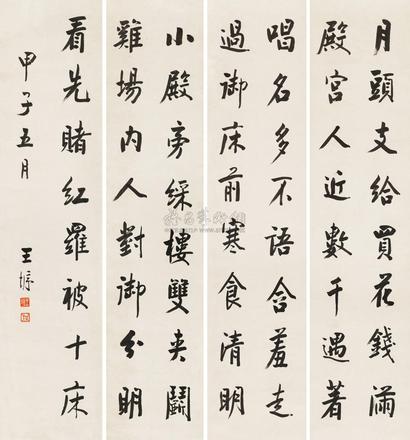 月頭支給買花錢滿
殿宮人近數千遇著
唱名多不語含羞走
過御床前寒食清明
小殿旁綵樓雙夾鬭
雞場內人對御分明
看先賭紅羅被十床
甲子五月 王